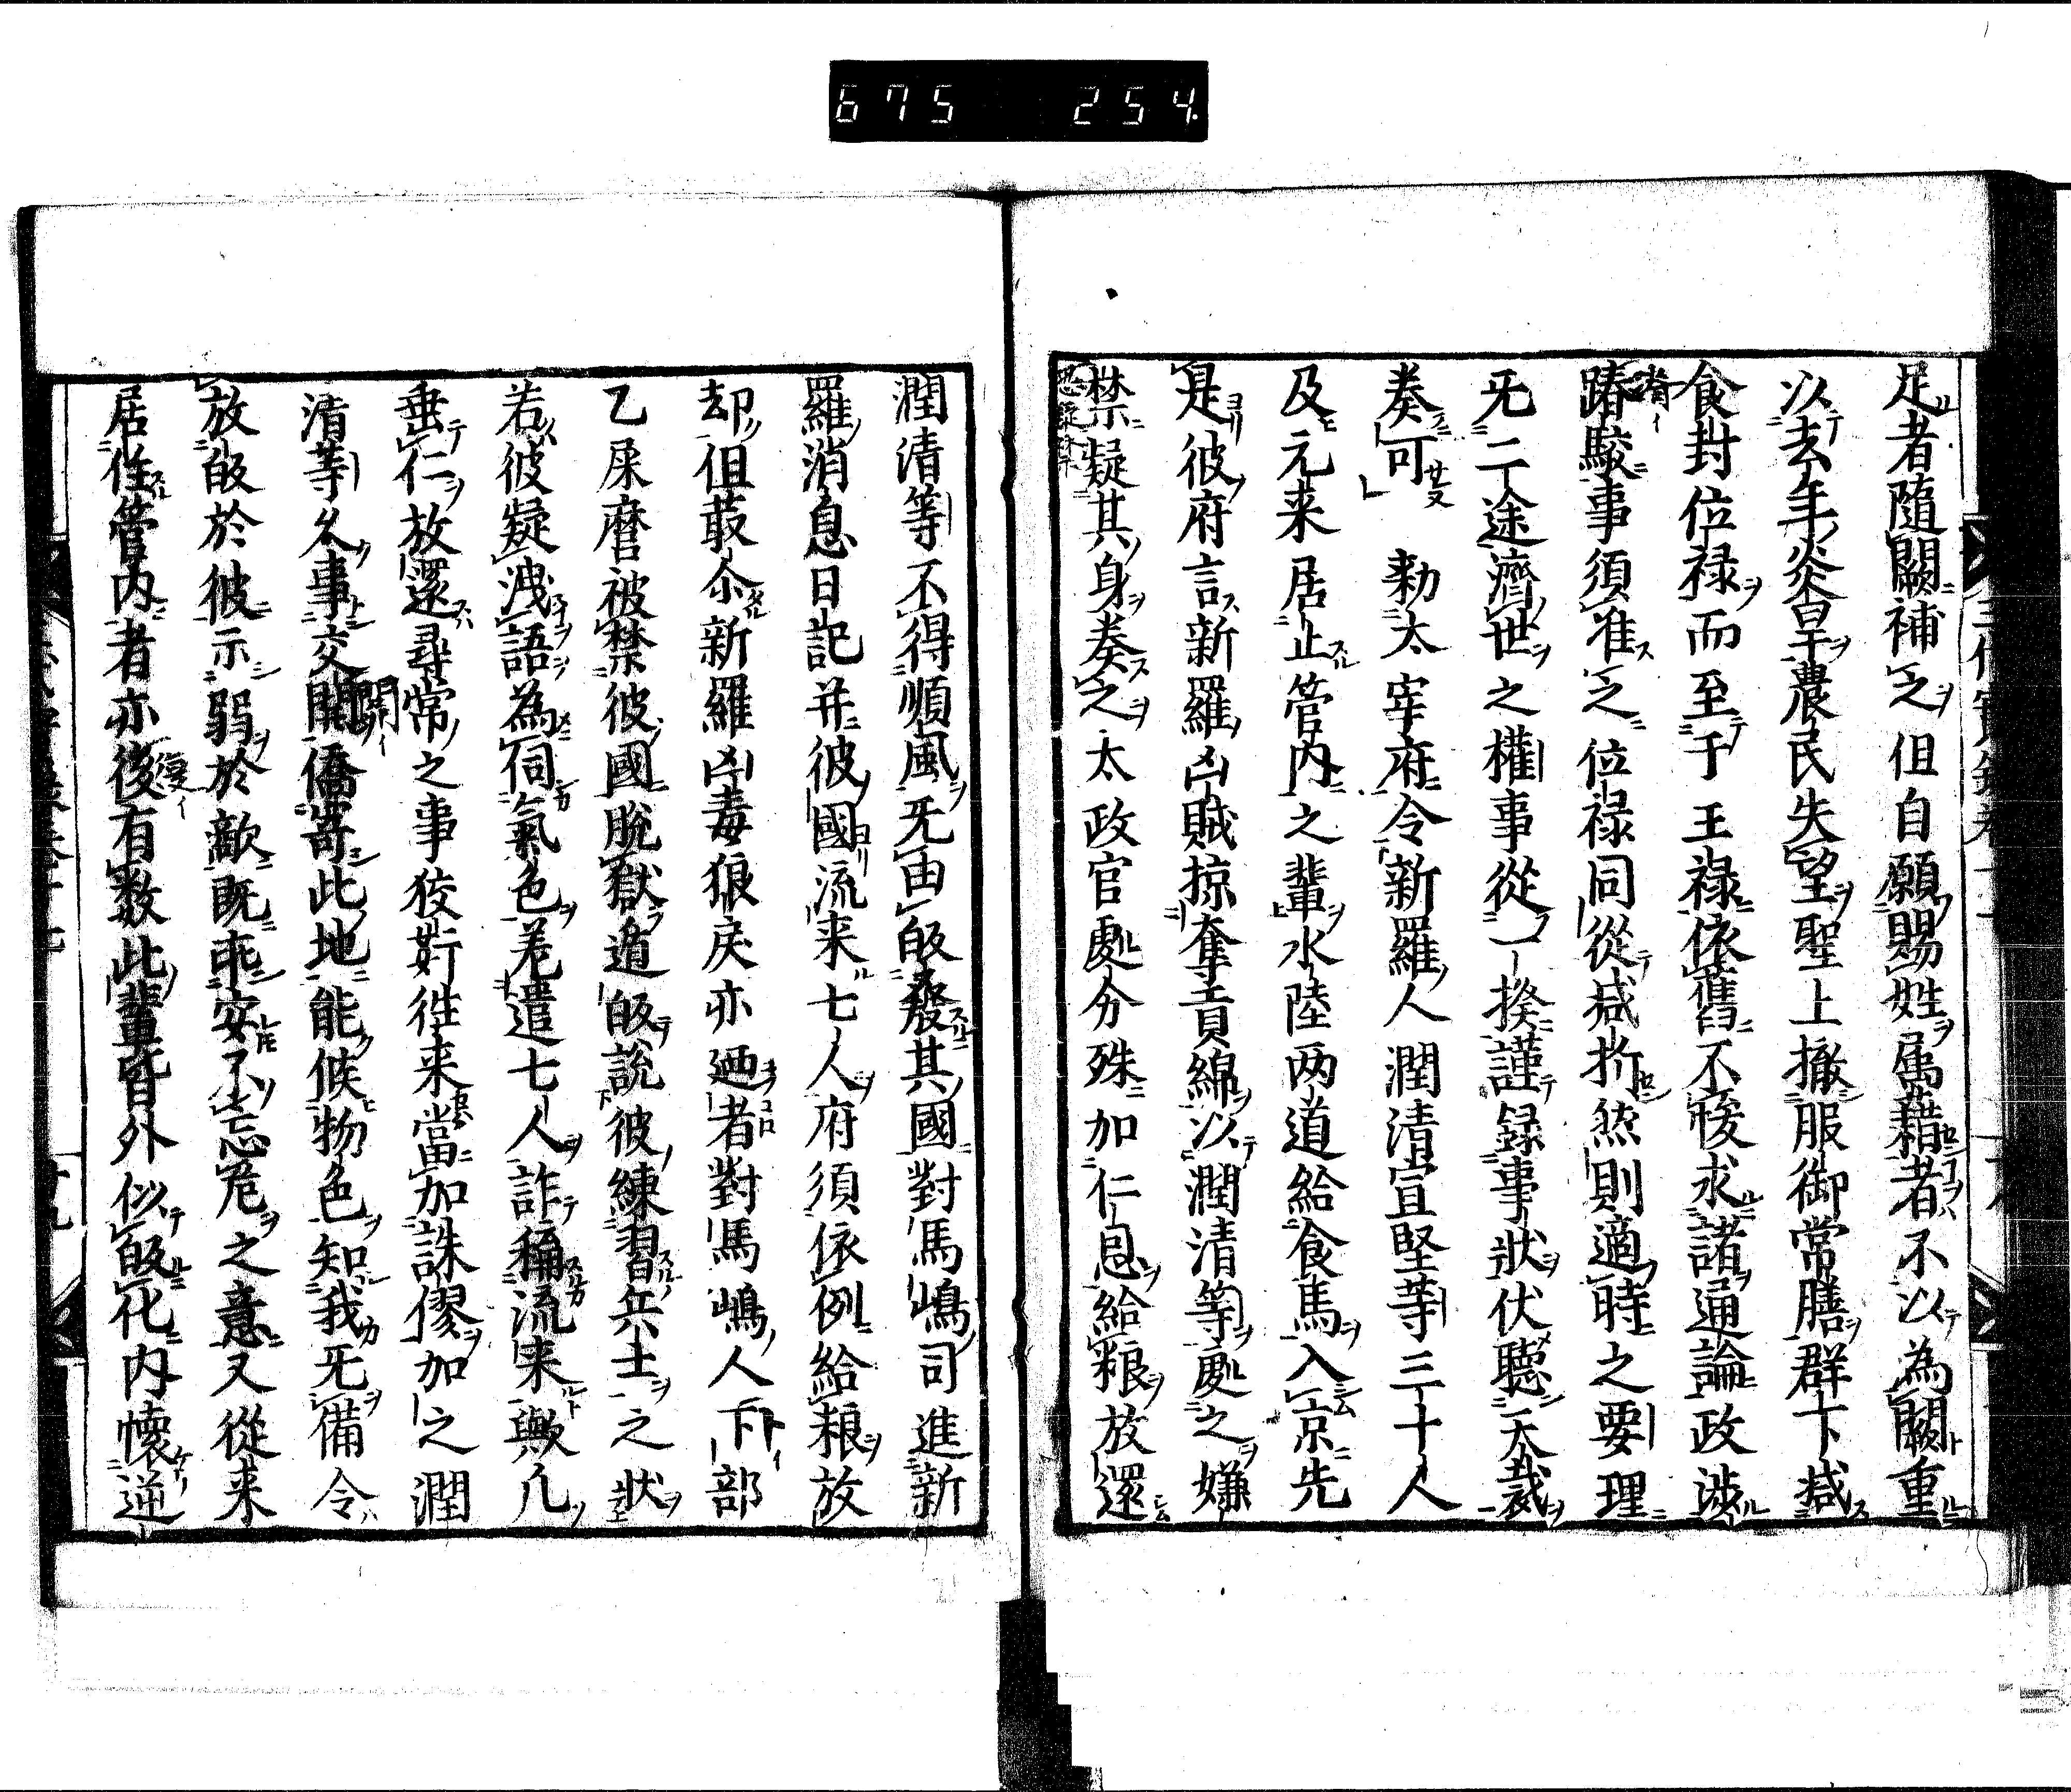 675 254
足者隨闕補之但自願賜姓属藉者不以為闕重
以去年炎旱農民失望聖上撤服御常膳群下减
食封位禄而至于王禄依舊不悛求諸通論政渉
踳駮事須准之位禄同從减折然則適時之要理
旡二途濟世之權事從一揆謹録事状伏聴天裁
奏可 勅太宰府令新羅人潤清宣堅等三十人
及元来居止管内之輩水陸两道給食馬入京先
是彼府言新羅凶賊掠奪貢綿以潤清等處之嫌
禁疑其身奏之太政官處分殊加仁恩給粮放還
潤清等不得順風旡由皈發其國對馬嶋司進新
羅消息日記并彼國流来七人府須依例給粮放
却但蕞尒新羅凶毒狼戻亦廼者對馬嶋人下部
乙屎麿被禁彼國脫獄遁皈説彼練習兵士之状
若彼疑洩語為伺氣色差遣七人詐稱流来歟凡
垂仁放還尋常之事狡姧徃来當加誅僇加之潤
清等久事交関僑寄此地能候物色知我旡備令
放皈於彼示弱於敵既乖安不忘危之意又從来
居住管内者亦後有数此輩皆外似皈化内懷逆